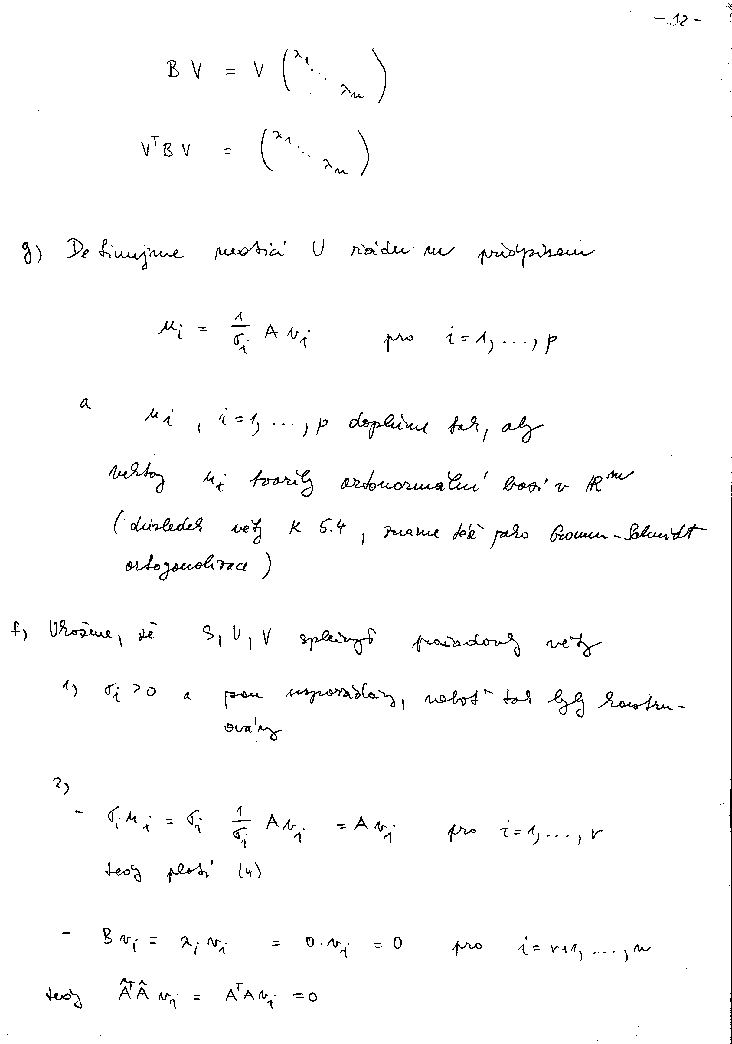 - 12 -
B V = V ( λ₁ ⋱ λₙ )
VᵀB V = ( λ₁ ⋱ λₙ )
g) Definujme matici U řádu m předpisem
uᵢ = 1/σᵢ A vᵢ pro i = 1, ..., p
a uᵢ , i = 1, ..., p doplníme tak, aby
vektory uᵢ tvořily ortonormální basi v ℝᵐ
(důsledek věty K 5.4 , známe též jako Gramm - Schmidt
ortogonalizace )
f) Ukážeme, že S, U, V splňují požadavky věty
1) σᵢ > 0 a jsou uspořádány, neboť tak byly konstru-
ovány
2)
- σᵢ uᵢ = σᵢ 1/σᵢ A vᵢ = A vᵢ pro i = 1, ..., r
tedy platí (4)
- B vᵢ = λᵢ vᵢ = 0 . vᵢ = 0 pro i = r+1, ..., n
tedy ÂᵀÂ vᵢ = AᵀA vᵢ = 0